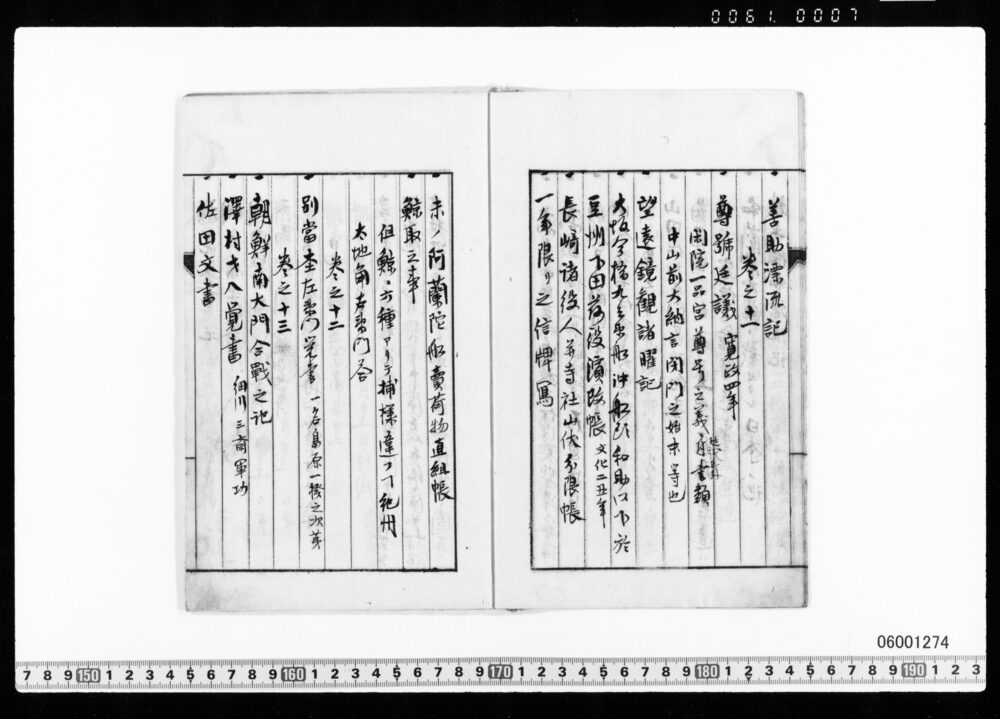 0061.0007
善助漂流記
巻之十一
尊號廷議 寛政四年
閑院一品宮尊号之義ニ付書類
中山前大納言閉門之始末等也
望遠鏡觀諸曜記
大坂今橋九之助船沖船頭和助口下於
豆州下田荷役濱改帳 文化二丑年
長崎諸役人并寺社山伏分限帳
一年限リ之信牌寫
未ノ阿蘭陀船賣荷物直組帳
鯨取之事
但鯨ニ六種アリテ捕様違フ丁紀州
太地角右衛門答
巻之十二
別當杢左衛門覚書 一名島原一揆之次第
巻之十三
朝鮮南大門合戰之記
澤村才八覚書 細川三斎軍功
佐田文書
06001274
7 8 9 150 1 2 3 4 5 6 7 8 9 160 1 2 3 4 5 6 7 8 9 170 1 2 3 4 5 6 7 8 9 180 1 2 3 4 5 6 7 8 9 190 1 2 3